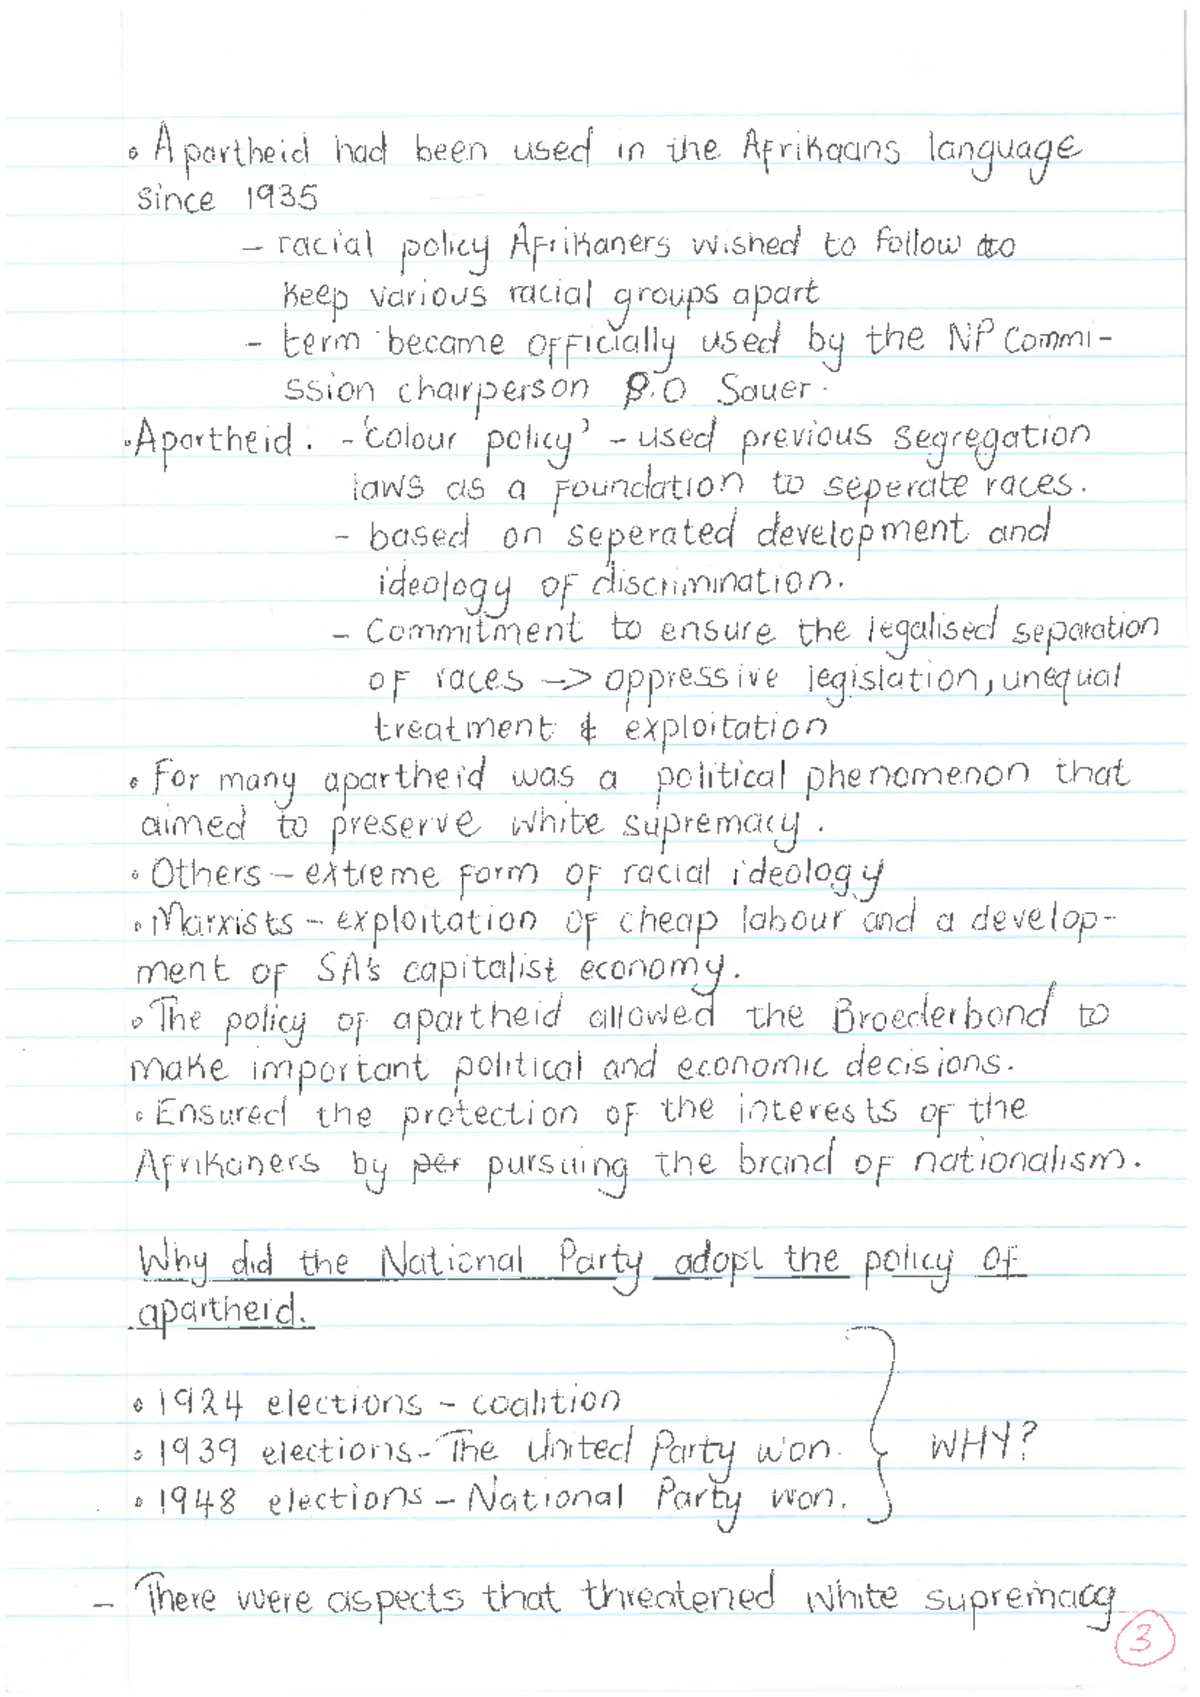 • Apartheid had been used in the Afrikaans language
since 1935
- racial policy Afrikaners wished to follow to
keep various racial groups apart
- term became officially used by the NP Commi-
ssion chairperson P.O Sauer.
• Apartheid. - 'colour policy' - used previous segregation
laws as a foundation to seperate races.
- based on seperated development and
ideology of discrimination.
- Commitment to ensure the legalised separation
of races -> oppressive legislation, unequal
treatment & exploitation
• For many apartheid was a political phenomenon that
aimed to preserve white supremacy.
• Others - extreme form of racial ideology
• Marxists - exploitation of cheap labour and a develop-
ment of SA's capitalist economy.
• The policy of apartheid allowed the Broederbond to
make important political and economic decisions.
• Ensured the protection of the interests of the
Afrikaners by per pursuing the brand of nationalism.
Why did the National Party adopt the policy of
apartheid.
• 1924 elections - coalition
• 1939 elections - The United Party won. } WHY?
• 1948 elections - National Party won.
- There were aspects that threatened white supremacy
3